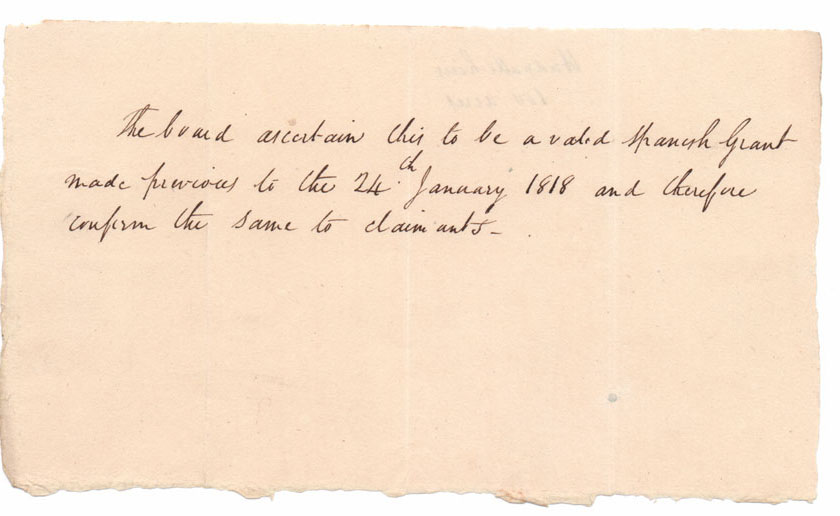 The board ascertain this to be a valid Spanish Grant
made previous to the 24th January 1818 and therefore
confirm the same to claimants -